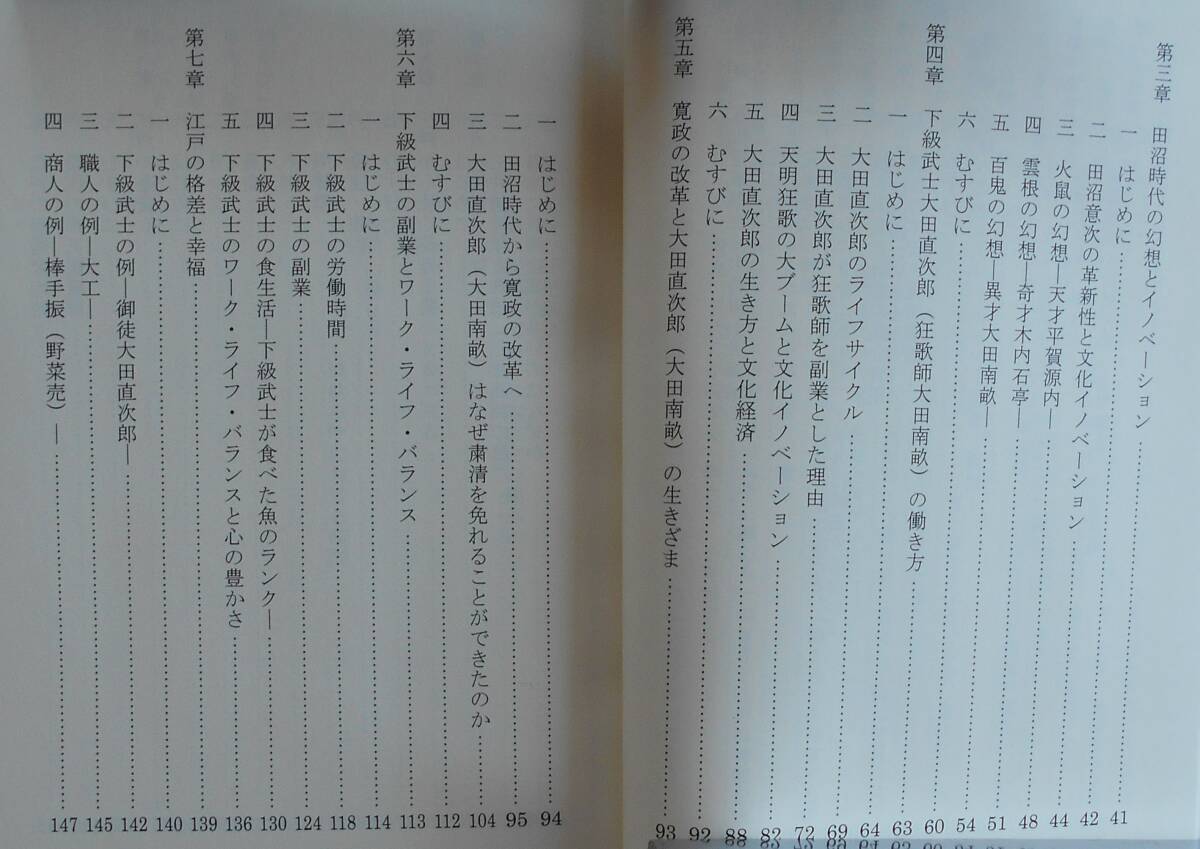 第三章 田沼時代の幻想とイノベーション……41
一 はじめに……42
二 田沼意次の革新性と文化イノベーション……44
三 火鼠の幻想―天才平賀源内―……48
四 雲根の幻想―奇才木内石亭―……51
五 百鬼の幻想―異才大田南畝―……54
六 むすびに……60
第四章 下級武士大田直次郎（狂歌師大田南畝）の働き方……63
一 はじめに……64
二 大田直次郎のライフサイクル……69
三 大田直次郎が狂歌師を副業とした理由……72
四 天明狂歌の大ブームと文化イノベーション……82
五 大田直次郎の生き方と文化経済……88
六 むすびに……92
第五章 寛政の改革と大田直次郎（大田南畝）の生きざま……93
一 はじめに……94
二 田沼時代から寛政の改革へ……95
三 大田直次郎（大田南畝）はなぜ粛清を免れることができたのか……104
四 むすびに……112
第六章 下級武士の副業とワーク・ライフ・バランス……113
一 はじめに……114
二 下級武士の労働時間……118
三 下級武士の副業……124
四 下級武士の食生活―下級武士が食べた魚のランク―……130
五 下級武士のワーク・ライフ・バランスと心の豊かさ……136
第七章 江戸の格差と幸福……139
一 はじめに……140
二 下級武士の例―御徒大田直次郎―……142
三 職人の例―大工―……145
四 商人の例―棒手振（野菜売）―……147